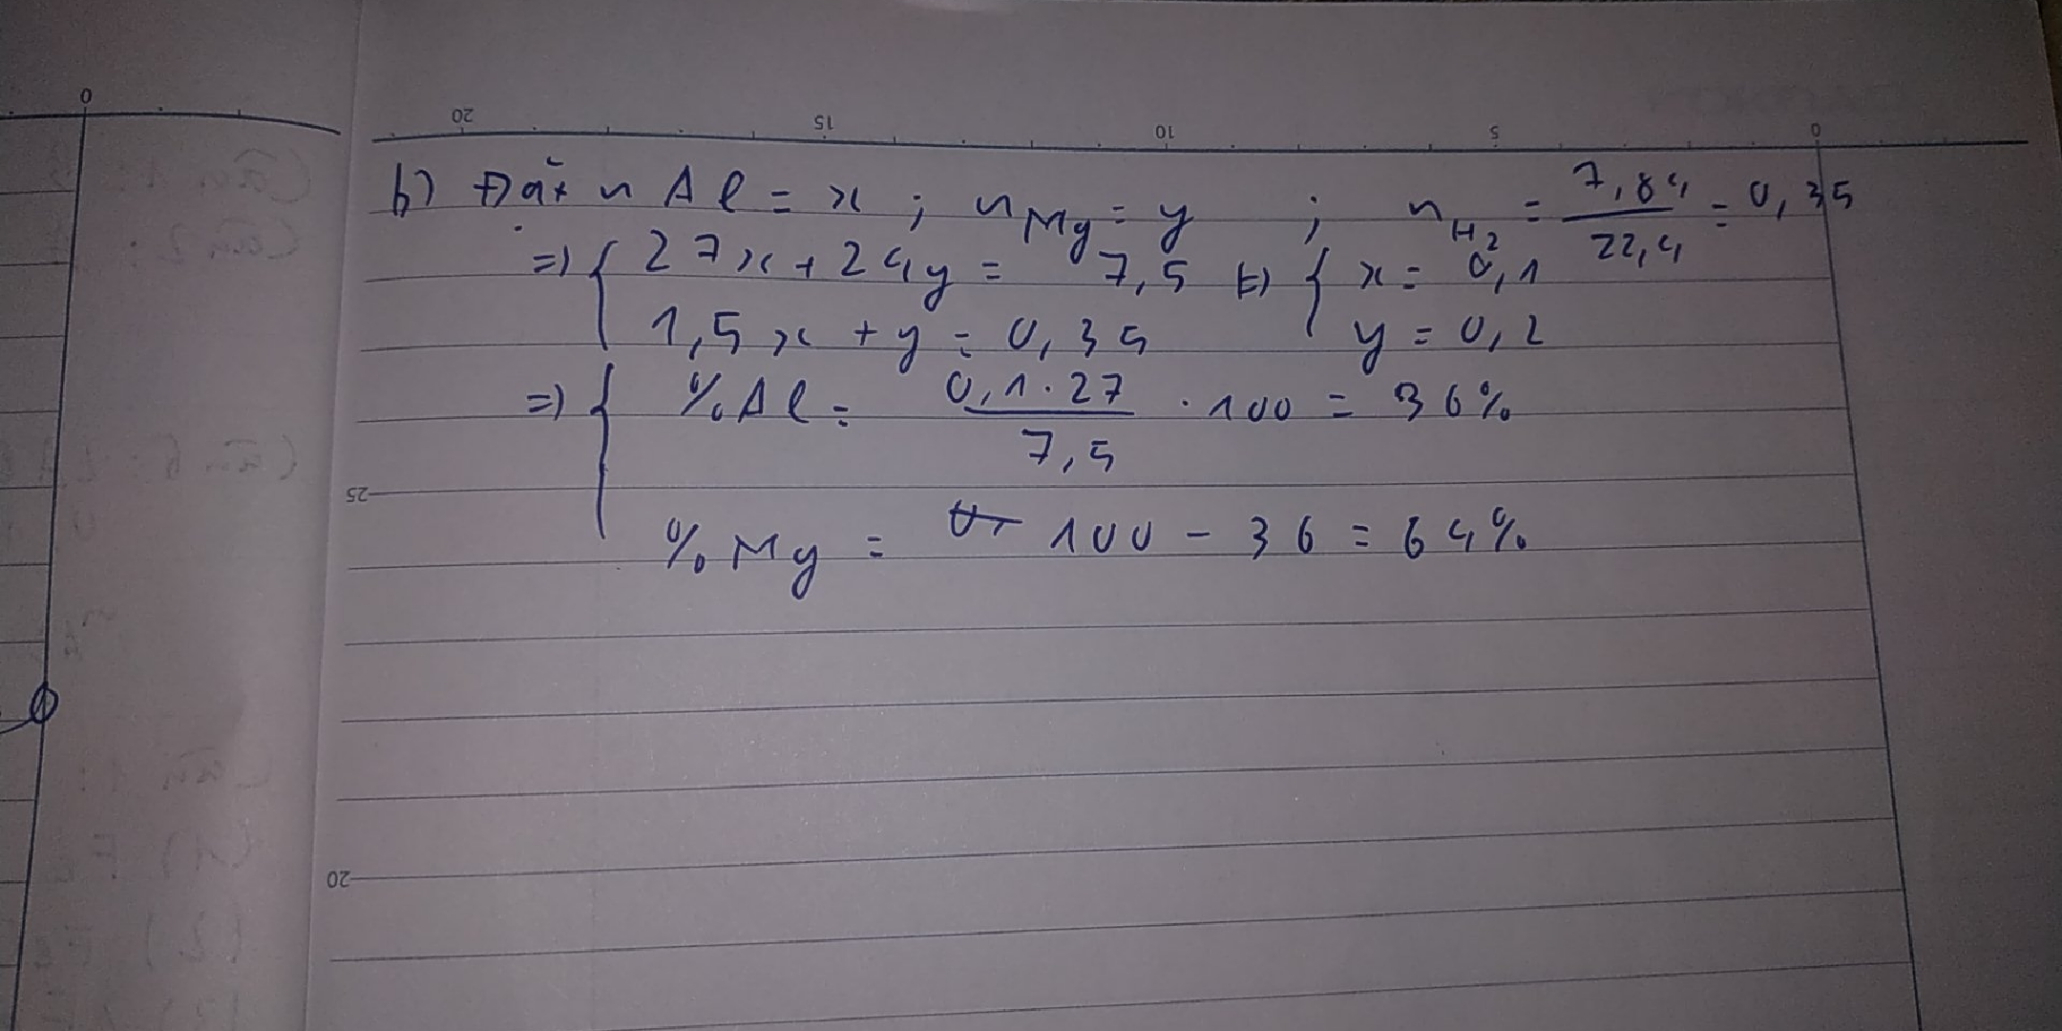 0 20 15 10 5 0
b) Đặt n Al = x ; n Mg = y ; n H2 = 7,84 / 22,4 = 0,35
=> { 27x + 24y = 7,5 <=> { x = 0,1
1,5x + y = 0,35 y = 0,2
=> { % Al = 0,1 . 27 / 7,5 . 100 = 36%
25
% Mg = 100 - 36 = 64%
20